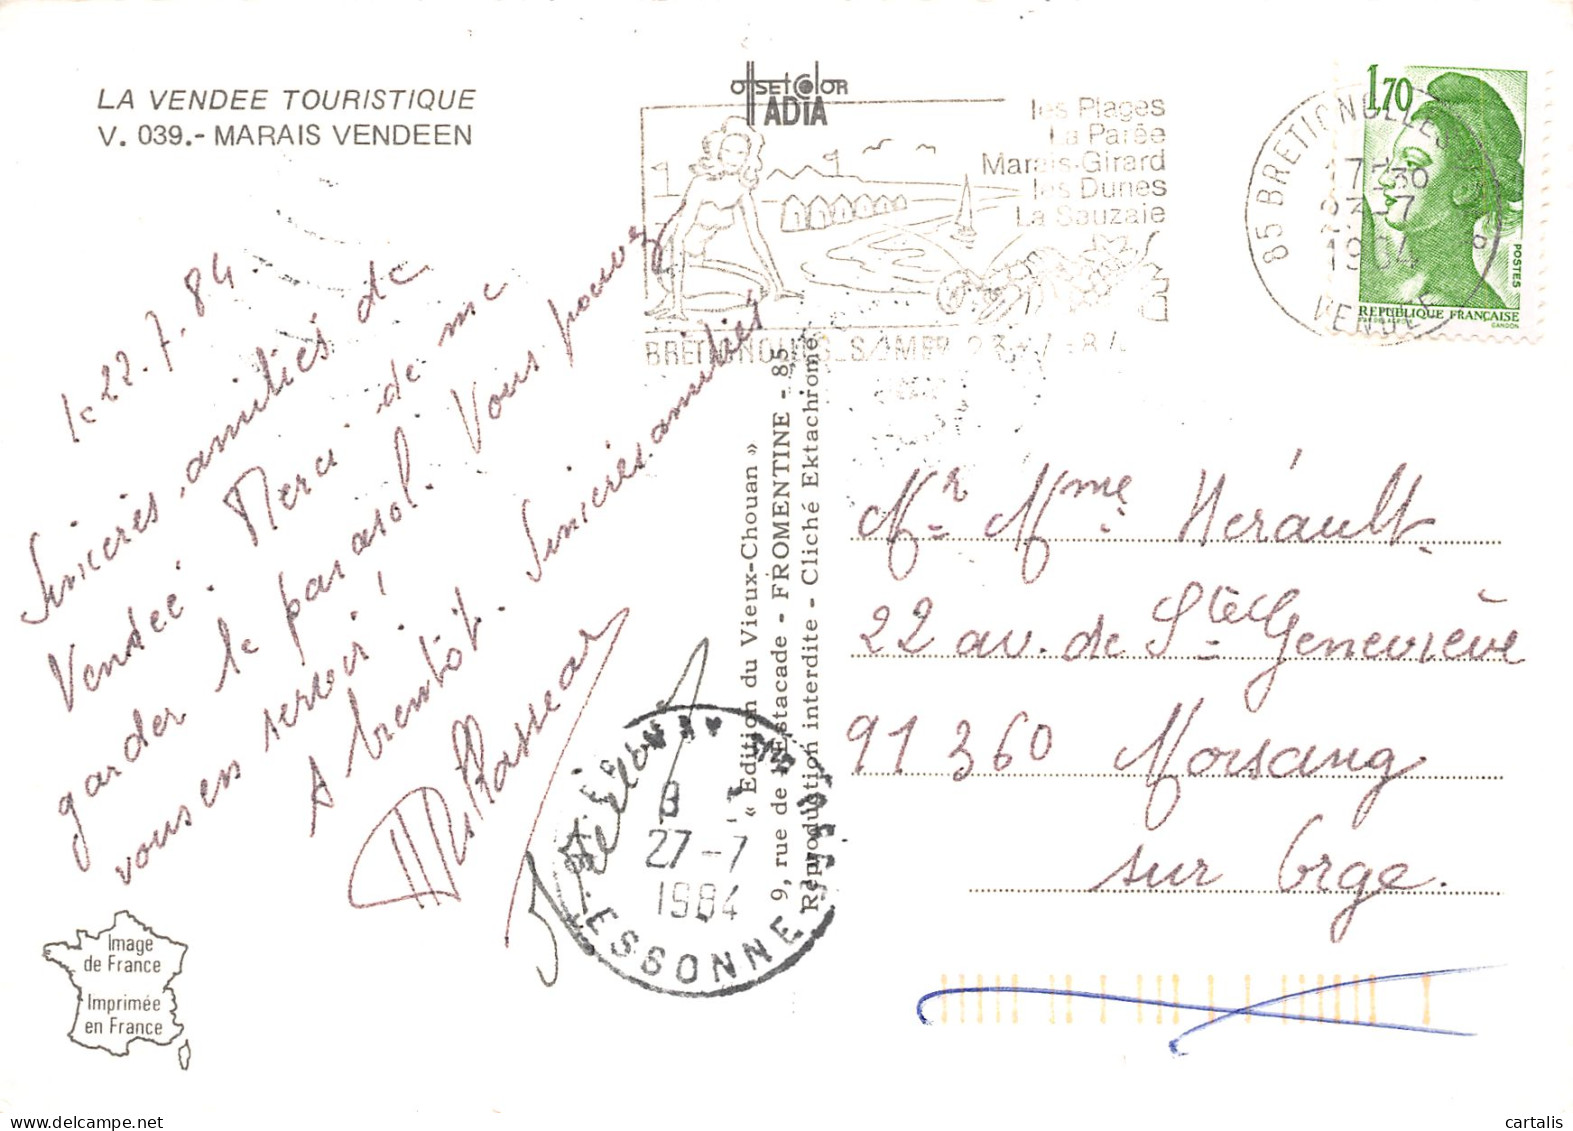 LA VENDEE TOURISTIQUE
V. 039.- MARAIS VENDEEN
offsetcolor
ADIA
les Plages
La Parée
Marais-Girard
les Dunes
La Sauzaie
85 BRETIGNOLLES
17-30
23-7
1984
VENDEE
1,70
POSTES
REPUBLIQUE FRANÇAISE
GANDON
le 22-7-84
Sincères amitiés de
Vendée. Merci de me
garder le parasol. Vous pouvez
vous en servir!
A bientôt. Sincères amitiés
« Edition du Vieux-Chouan »
9, rue de l'Estacade - FROMENTINE - 85
Reproduction interdite - Cliché Ektachrome
Mr Mme Hérault
22 av. de Ste Geneviève
91 360 Morsang
sur Orge.
27-7
1984
ESSONNE
Image
de France
Imprimée
en France
cartalis